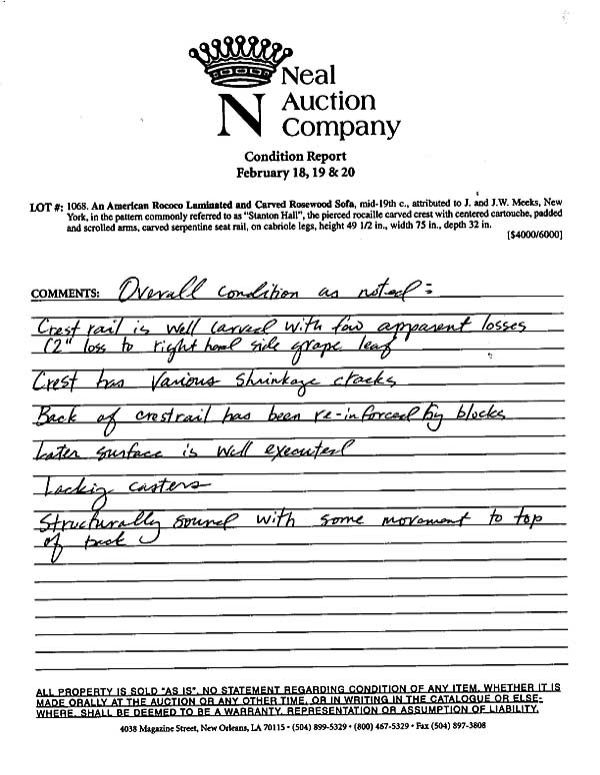 Neal
Auction
Company
N
Condition Report
February 18, 19 & 20
LOT #: 1068. An American Rococo Laminated and Carved Rosewood Sofa, mid-19th c., attributed to J. and J.W. Meeks, New
York, in the pattern commonly referred to as "Stanton Hall", the pierced rocaille carved crest with centered cartouche, padded
and scrolled arms, carved serpentine seat rail, on cabriole legs, height 49 1/2 in., width 75 in., depth 32 in.
[$4000/6000]
COMMENTS: Overall condition as noted:
Crest rail is well carved with few apparent losses
(2" loss to right hand side grape leaf
Crest has various shrinkage cracks
Back of crestrail has been re-inforced by blocks
Later surface is well executed
Lacking casters
Structurally sound with some movement to top
of back
ALL PROPERTY IS SOLD "AS IS". NO STATEMENT REGARDING CONDITION OF ANY ITEM, WHETHER IT IS
MADE ORALLY AT THE AUCTION OR ANY OTHER TIME, OR IN WRITING IN THE CATALOGUE OR ELSE-
WHERE, SHALL BE DEEMED TO BE A WARRANTY, REPRESENTATION OR ASSUMPTION OF LIABILITY.
4038 Magazine Street, New Orleans, LA 70115 • (504) 899-5329 • (800) 467-5329 • Fax (504) 897-3808